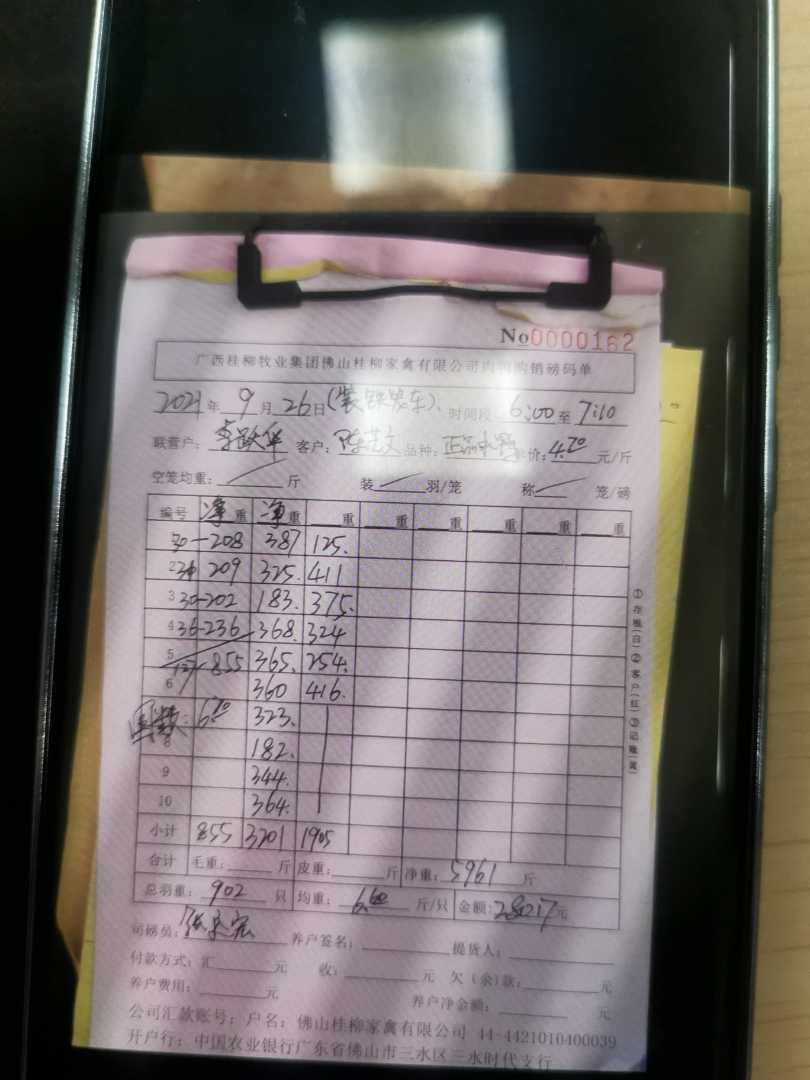 No0000162
广西桂柳牧业集团佛山桂柳家禽有限公司内部购销磅码单
2021年 9月 26日 时间段 6:00 至 7:10
联营户: 李跃华 客户: 陈芝文 品种: 正品 价: 4.70 元/斤
空笼均重: 斤 装 羽/笼 称 笼/磅
编号 净重 净重 重 重 重 重 重 重
30-208 387 125.
2 209 325. 411
3 30-202 183. 375.
4 36-236 368. 324
5 855 365. 254.
6 360 416.
6.70 323.
8 182.
9 344.
10 364.
小计 855 3201 1905
合计 毛重: 斤 皮重: 斤 净重: 5961 斤
总羽重: 902 只 均重: 6.60 斤/只 金额: 28017元
司磅员: 养户签名: 提货人:
付款方式: 汇 元 收: 元 欠(余)款: 元
养户费用: 元 养户净金额: 元
公司汇款账号: 户名: 佛山桂柳家禽有限公司 44-4421010400039
开户行: 中国农业银行广东省佛山市三水区三水时代支行
①存根(白)②客户(红)③记账(黄)